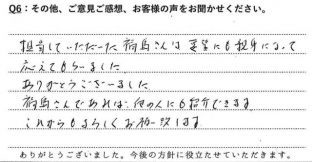 Q6：その他、ご意見ご感想、お客様の声をお聞かせください。
担当していただいた福島さんは要望にも親身になって
応えてもらいました
ありがとうございました
福島さんであれば、他の人にも紹介できます。
これからもよろしくお願い致します
ありがとうございました。今後の方針に役立たせていただきます。